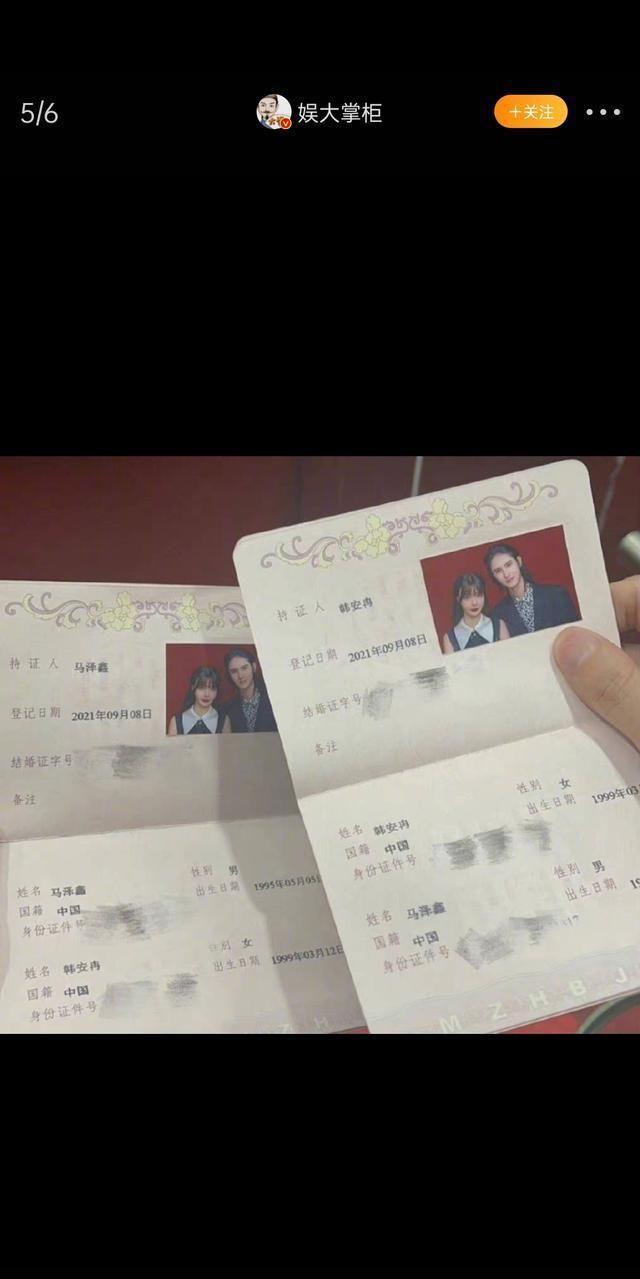 5/6
娱大掌柜
+关注
持证人 马泽鑫
登记日期 2021年09月08日
结婚证字号
备注
姓名 马泽鑫
性别 男
国籍 中国
出生日期 1995年05月05日
身份证件号
姓名 韩安冉
性别 女
国籍 中国
出生日期 1999年03月12日
身份证件号
持证人 韩安冉
登记日期 2021年09月08日
结婚证字号
备注
姓名 韩安冉
性别 女
国籍 中国
出生日期 1999年03
身份证件号
姓名 马泽鑫
性别 男
国籍 中国
出生日期 19
身份证件号
MZHBJ